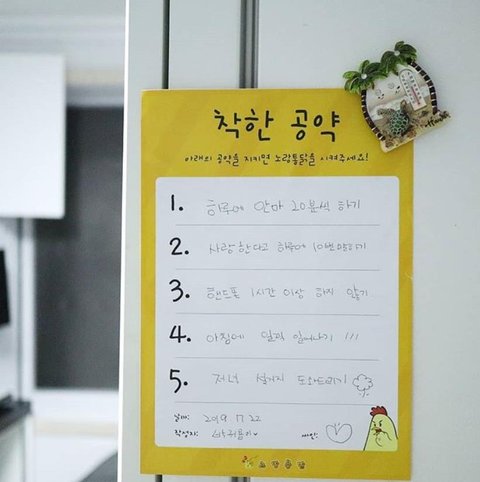 착한 공약
아래의 공약을 지키면 노랑통닭을 시켜주세요!
1. 하루에 안마 20분씩 하기
2. 사랑한다고 하루에 말하기
3. 핸드폰 1시간 이상 하지 않기
4. 아침에 일찍 일어나기 !!!
5. 저녁 설거지 도와드리기
날짜: 2019
작성자:
싸인:
노랑통닭